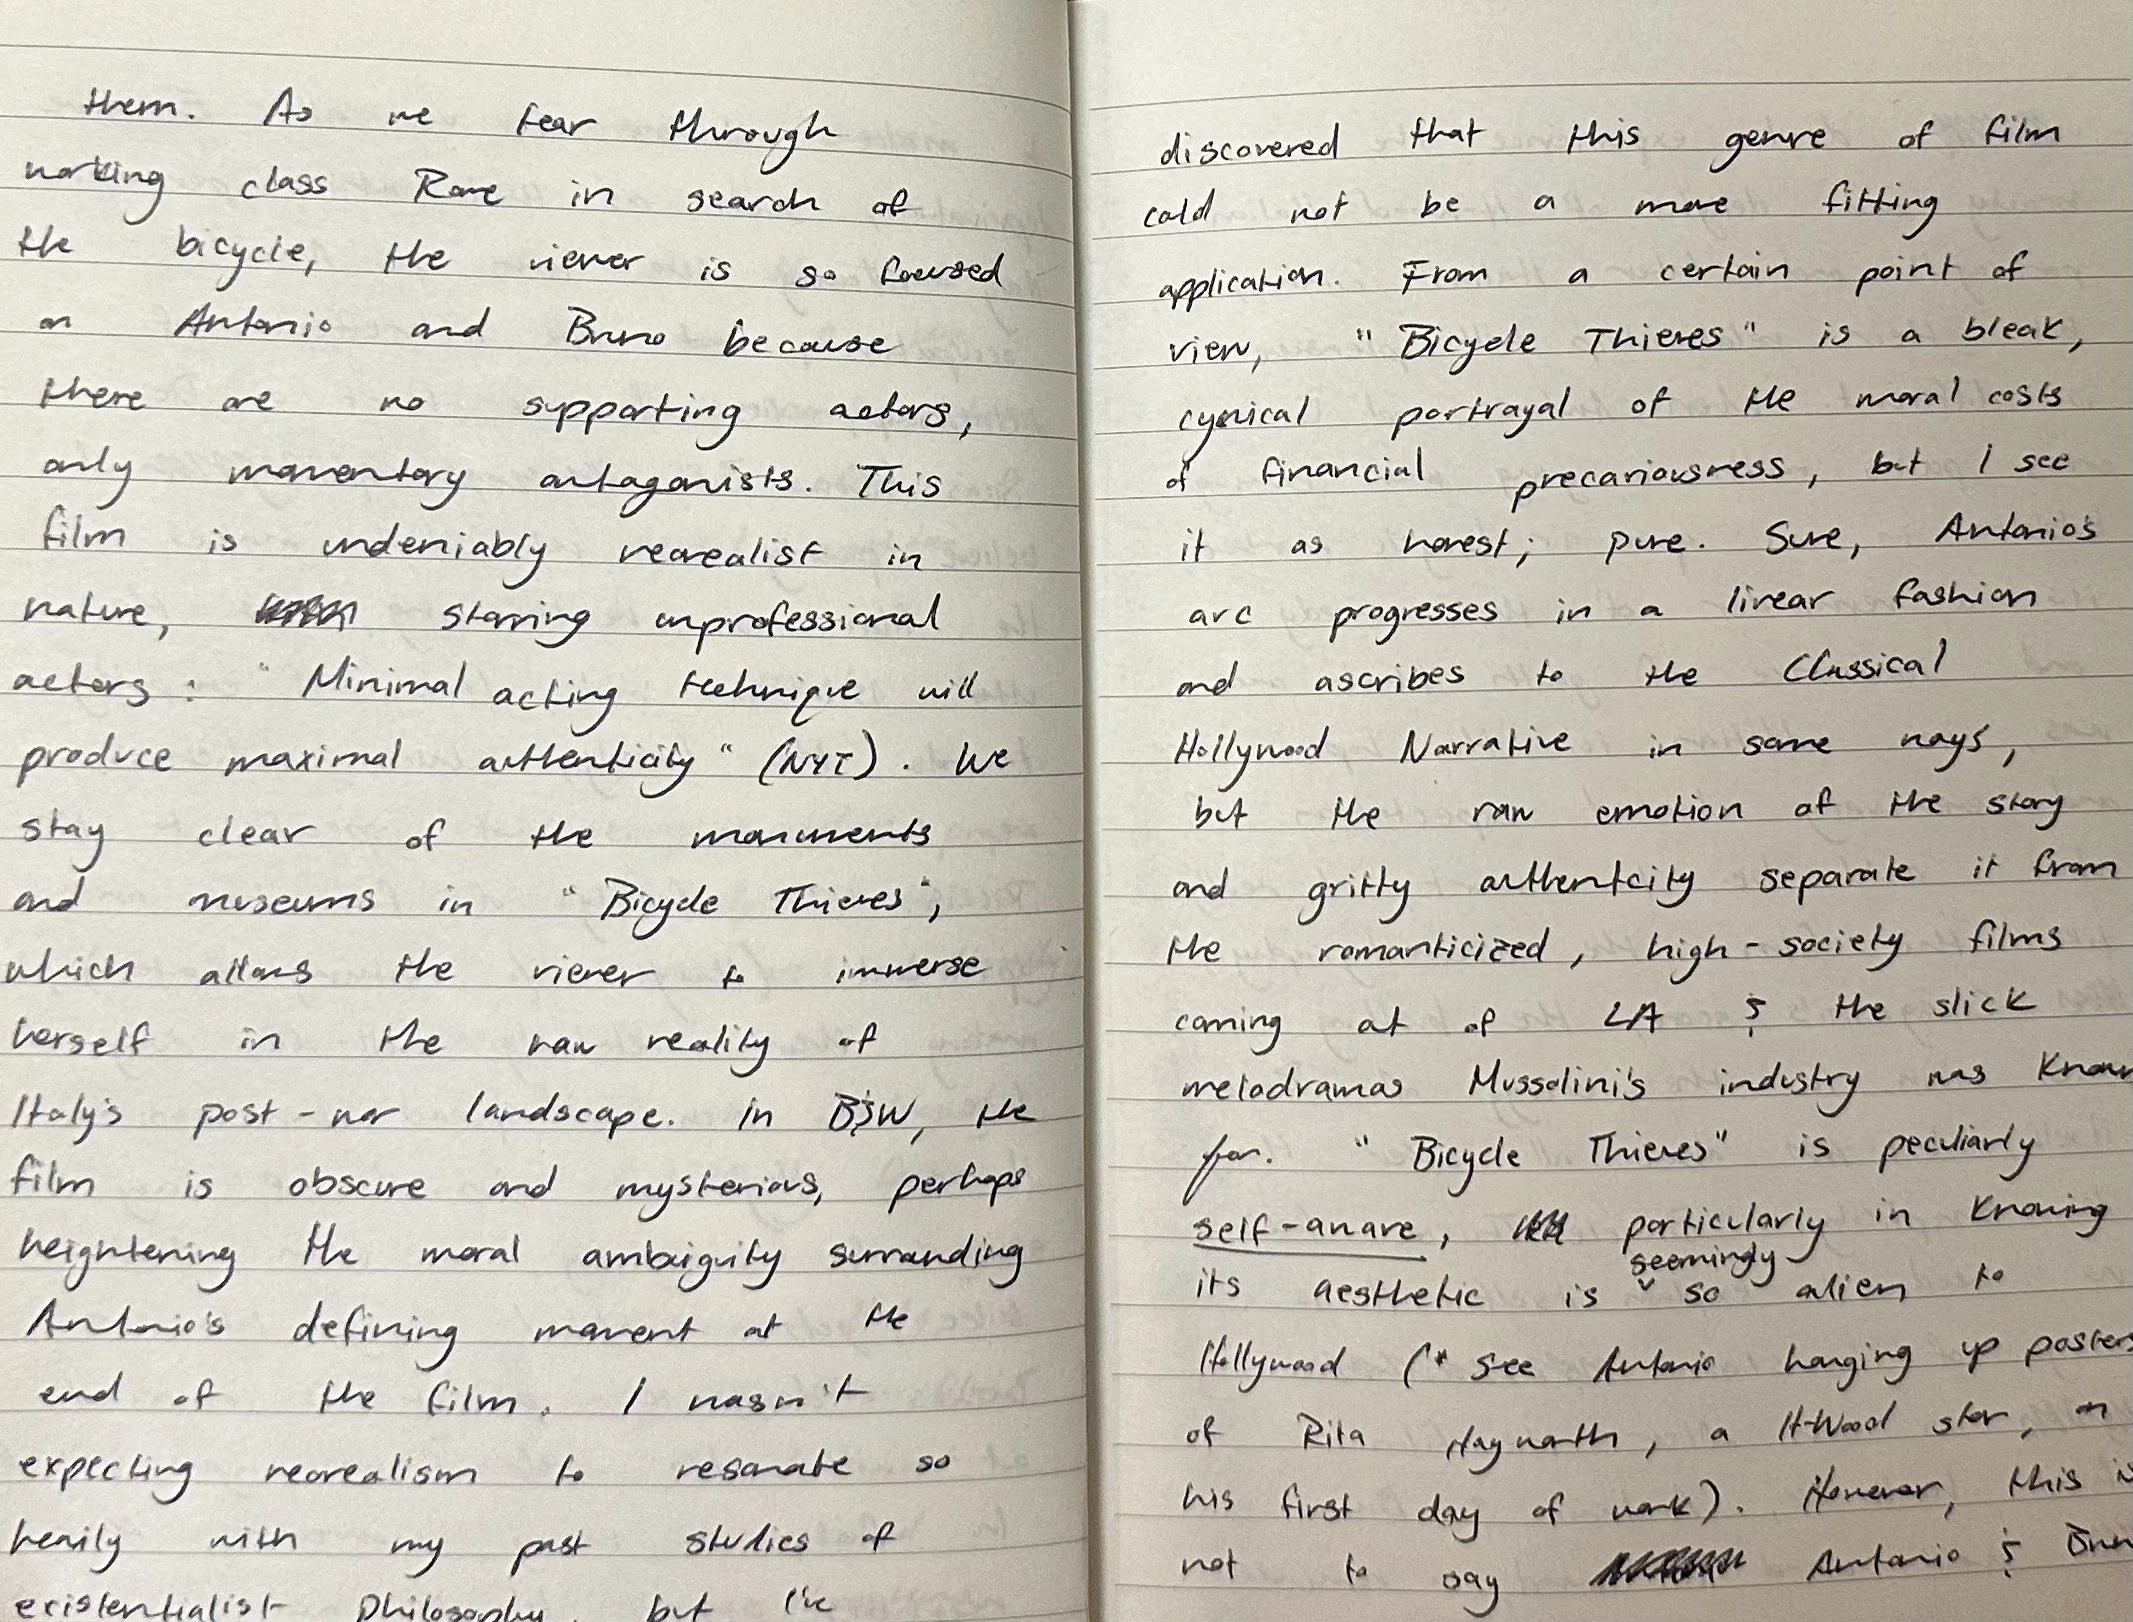 them. As we tear through
working class Rome in search of
the bicycle, the viewer is so focused
on Antonio and Bruno because
there are no supporting actors,
only momentary antagonists. This
film is undeniably neorealist in
nature, starring unprofessional
actors: "Minimal acting technique will
produce maximal authenticity" (NYT). We
stay clear of the monuments
and museums in "Bicycle Thieves",
which allows the viewer to immerse
herself in the raw reality of
Italy's post-war landscape. In B&W, the
film is obscure and mysterious, perhaps
heightening the moral ambiguity surrounding
Antonio's defining moment at the
end of the film. I wasn't
expecting neorealism to resonate so
heavily with my past studies of
existentialist philosophy, but I've
discovered that this genre of film
could not be a more fitting
application. From a certain point of
view, "Bicycle Thieves" is a bleak,
cynical portrayal of the moral costs
of financial precariousness, but I see
it as honest; pure. Sure, Antonio's
arc progresses in a linear fashion
and ascribes to the Classical
Hollywood Narrative in some ways,
but the raw emotion of the story
and gritty authenticity separate it from
the romanticized, high-society films
coming out of LA & the slick
melodramas Mussolini's industry was known
for. "Bicycle Thieves" is peculiarly
self-aware, particularly in knowing
its aesthetic is seemingly so alien to
Hollywood (* see Antonio hanging up posters
of Rita Hayworth, a H-Wood star, on
his first day of work). However, this is
not to say Antonio & Brun